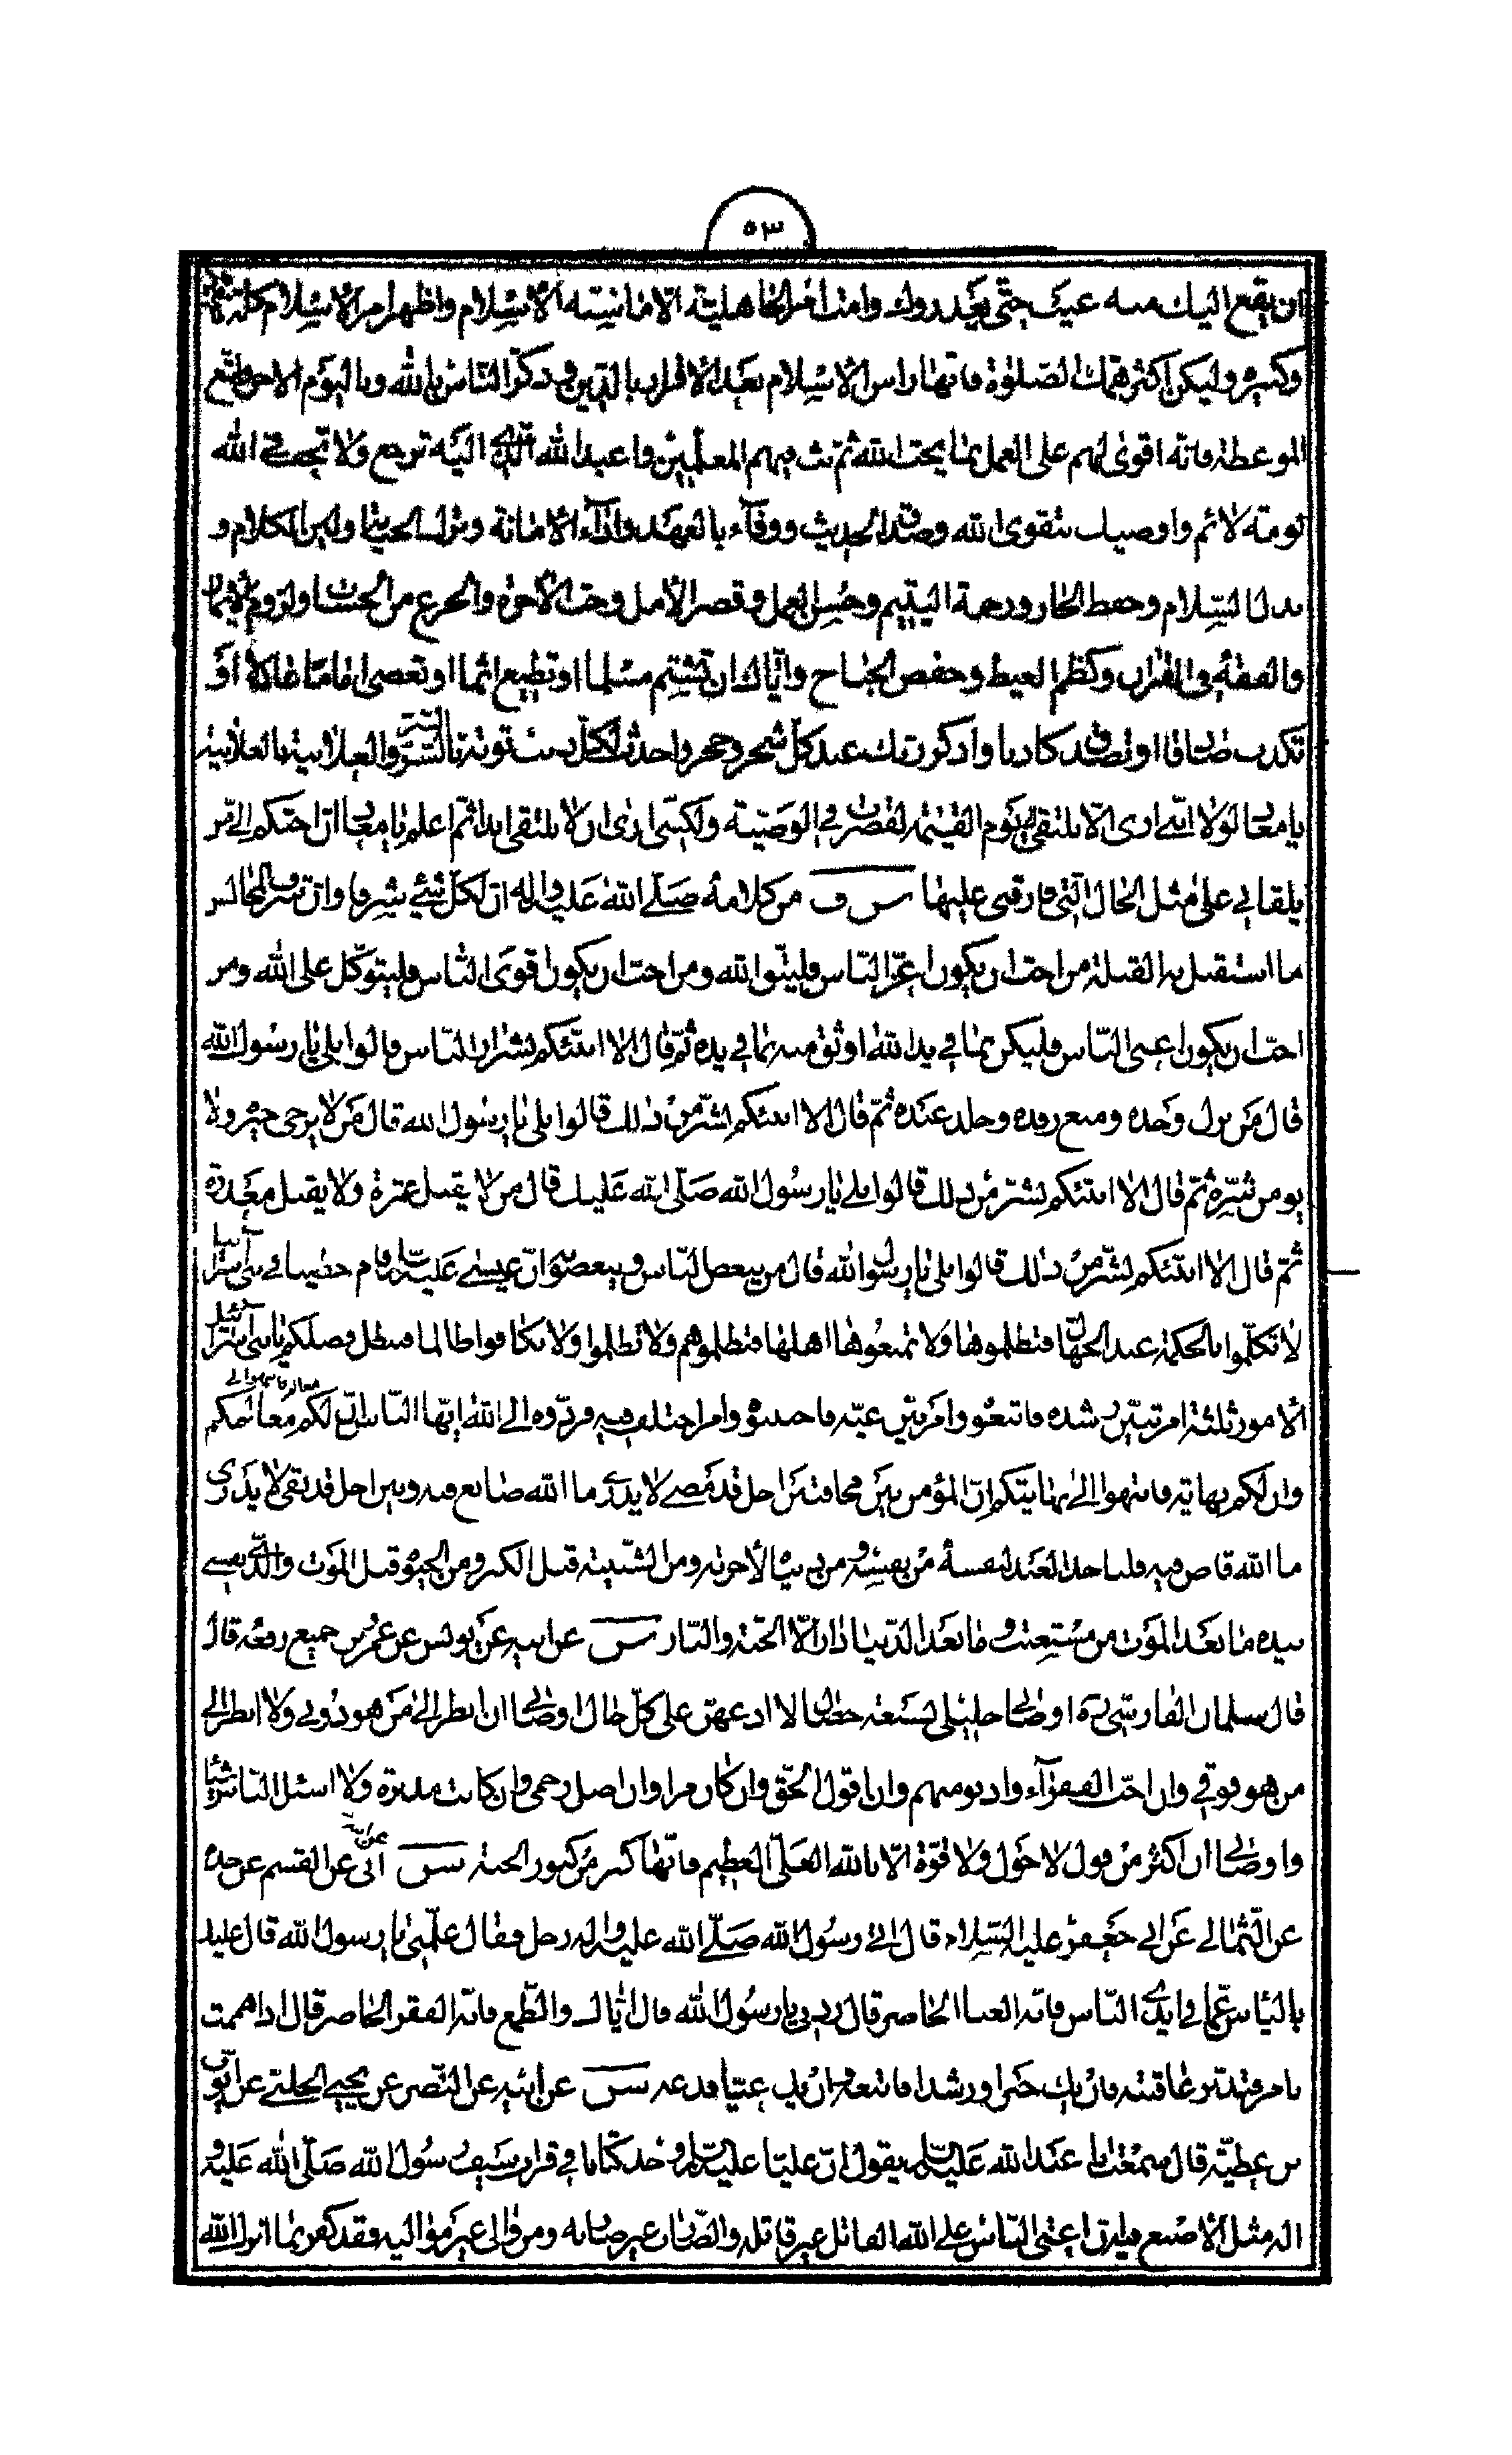 ٥٣
ان يقع اليك منه عيب حتى يعذروك وامت امر الجاهلية الا ما سنه الاسلام واظهر امر الاسلام كله صغيره
وكبيره وليكن اكثر همك الصلوة فانها راس الاسلام بعد الاقرار بالدين وذكر الناس بالله وباليوم الاخر واتبع
الموعظة فانه اقوى لهم على العمل بما يحب الله ثم بث فيهم المعلمين واعبد الله الذى اليه ترجع ولا تخف في الله
لومة لائم واوصيك بتقوى الله وصدق الحديث ووفاء بالعهد واداء الامانة وترك الخيانة ولين الكلام و
بذل السلام وحفظ الجار ورحمة اليتيم وحسن العمل وقصر الامل وحب الاخرة والجزع من الحساب ولزوم الايمان
والفقه في القران وكظم الغيظ وخفض الجناح واياك ان تشتم مسلما او تطيع اثما او تعصى اماما عادلا او
تكذب صادقا او تصدق كاذبا واذكر ربك عند كل شجر وحجر واحدث لكل ذنب توبة السر بالسر والعلانية بالعلانية
يا معاذ لولا انني ارى الا نلتقى الى يوم القيمة لقصرت في الوصية ولكنني ارى ان لا نلتقى ابدا ثم اعلم يا معاذ ان احبكم الي من
يلقاني على مثل الحال التي فارقني عليها س ف من كلامه صلى الله عليه واله ان لكل شيء شرفا وان شرف المجالس
ما استقبل به القبلة من احب ان يكون اعز الناس فليتق الله ومن احب ان يكون اقوى الناس فليتوكل على الله ومن
احب ان يكون اغنى الناس فليكن بما في يد الله اوثق منه بما في يده ثم قال الا انبئكم بشرار الناس قالوا بلى يا رسول الله
قال من نزل وحده ومنع رفده وجلد عبده ثم قال الا انبئكم بشر من ذلك قالوا بلى يا رسول الله قال من لا يرجى خيره ولا
يومن شره ثم قال الا انبئكم بشر من ذلك قالوا بلى يا رسول الله صلى الله عليك قال من لا يقيل عثرة ولا يقبل معذرة
ثم قال الا انبئكم بشر من ذلك قالوا بلى يا رسول الله قال من يبغض الناس ويبغضونه ان عيسى عليه السلام قام خطيبا في بني اسرائيل فقال يا بني اسرائيل
لا تكلموا بالحكمة عند الجهال فتظلموها ولا تمنعوها اهلها فتظلموهم ولا تظلموا ولا تكافوا ظالما فيبطل فضلكم يا بني اسرائيل
الامور ثلثة امر تبين رشده فاتبعوه وامر بين غيه فاجتنبوه وامر اختلف فيه فردوه الى الله ايها الناس ان لكم معالم فانتهوا الى معالمكم
وان لكم نهاية فانتهوا الى نهايتكم ان المؤمن بين مخافتين اجل قد مضى لا يدرى ما الله صانع فيه وبين اجل قد بقى لا يدرى
ما الله قاض فيه فلياخذ العبد لنفسه من نفسه ومن دنياه لاخرته ومن الشبيبة قبل الكبر ومن الحيوة قبل الموت والذى نفسي
بيده ما بعد الموت من مستعتب وما بعد الدنيا دار الا الجنة والنار س عن ابيه عن يونس عن عمرو بن جميع رفعه قال
قال سلمان الفارسي ره اوصاني خليلي بسبعة خصال لا ادعهن على كل حال اوصاني ان انظر الى من هو دوني ولا انظر الى
من هو فوقي وان احب الفقراء وادنو منهم وان اقول الحق وان كان مرا وان اصل رحمي وان كانت مدبرة ولا اسئل الناس شيئا
واوصاني ان اكثر من قول لا حول ولا قوة الا بالله العلي العظيم فانها كنز من كنوز الجنة س ابى عن القسم عن جده
عن الثمالي عن ابي جعفر عليه السلام قال اتى رسول الله صلى الله عليه واله رجل فقال علمني يا رسول الله قال عليك
بالياس عما في ايدى الناس فانه الغنا الحاضر قال زدني يا رسول الله قال اياك والطمع فانه الفقر الحاضر قال اذا هممت
بامر فتدبر عاقبته فان يك خيرا ورشدا فاتبعه وان يك غيا فدعه س عن ابيه عن النضر عن يحيى الحلبي عن ايوب
بن عطية قال سمعت ابا عبد الله عليه السلم يقول ان عليا عليه السلم وجد كتابا في قراب سيف رسول الله صلى الله عليه و
اله مثل الاصبع فيه ان اعتى الناس على الله القاتل غير قاتله والضارب غير ضاربه ومن والى غير مواليه فقد كفر بما انزل الله